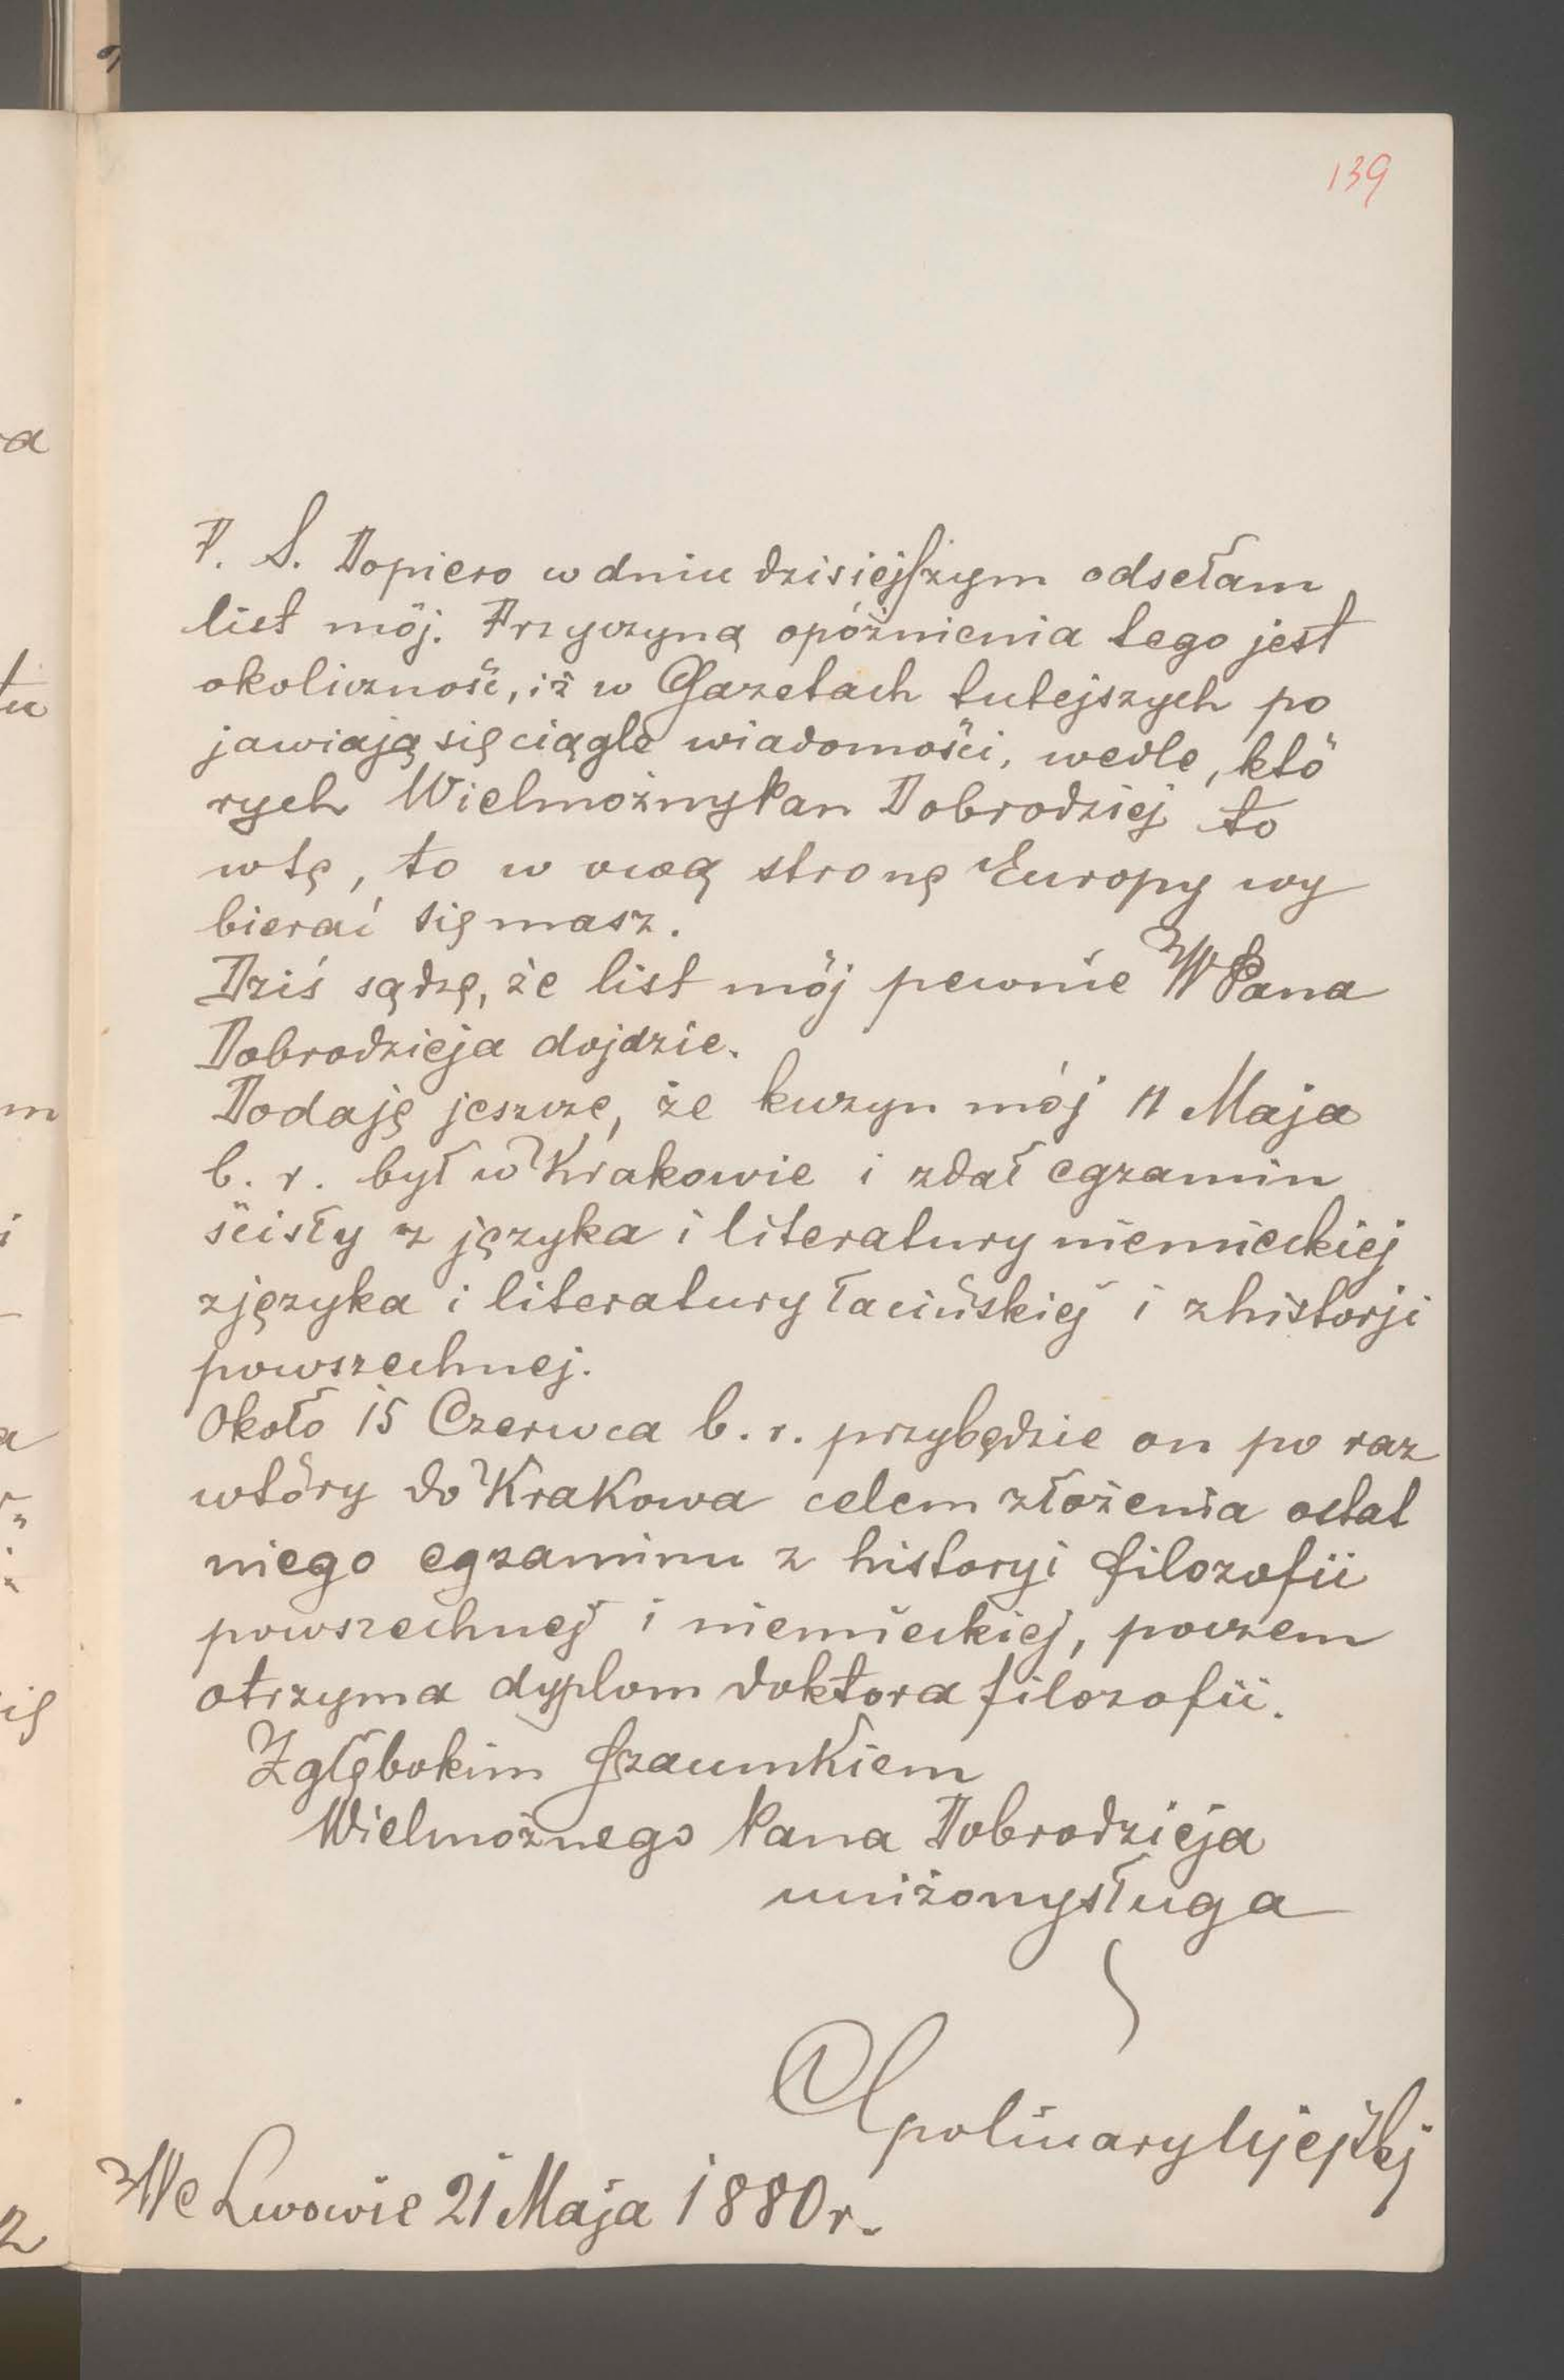 139
P. S. Dopiero w dniu dzisiejszym odsełam
list mój. Przyczyną opóźnienia tego jest
okoliczność, iż w Gazetach tutejszych po
jawiają się ciągle wiadomości, wedle, któ
rych Wielmożny Pan Dobrodziej to
w tę, to w ową stronę Europy wy
bierać się masz.
Dziś sądzę, że list mój pewnie WPana
Dobrodzieja dojdzie.
Dodaję jeszcze, że kuzyn mój 11 Maja
b. r. był w Krakowie i zdał egzamin
ścisły z języka i literatury niemieckiej
z języka i literatury łacińskiej i z historji
powszechnej.
Około 15 Czerwca b. r. przybędzie on po raz
wtóry do Krakowa celem złożenia ostat
niego egzaminu z historyi filozofii
powszechnej i niemieckiej, poczem
otrzyma dyplom doktora filozofii.
Z głębokim szacunkiem
Wielmożnego Pana Dobrodzieja
uniżony sługa
Apolinary
We Lwowie 21 Maja 1880 r.